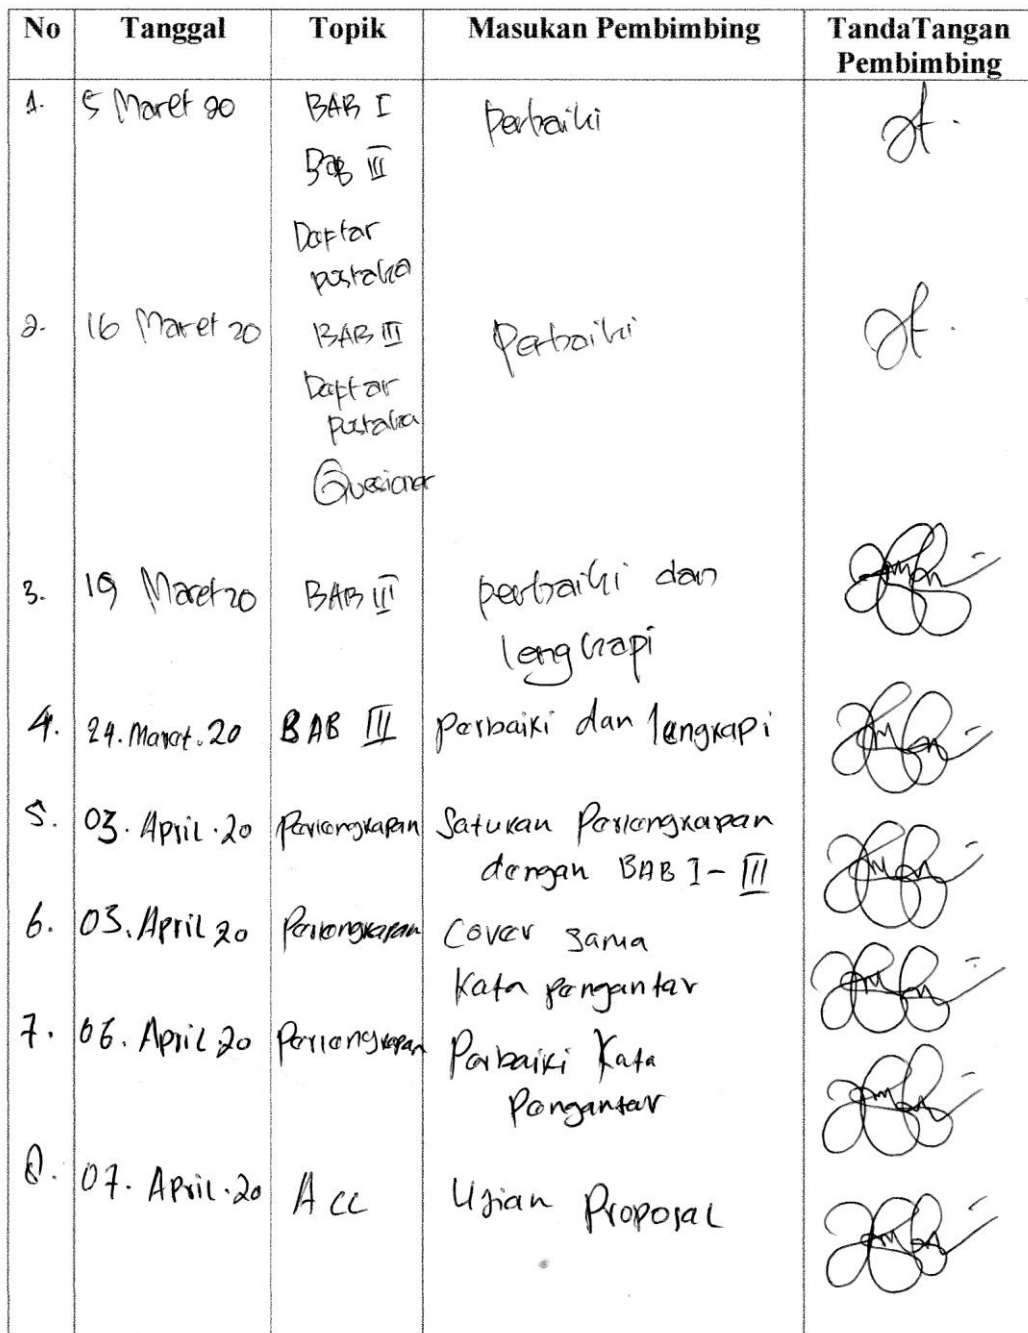 No Tanggal Topik Masukan Pembimbing TandaTangan
Pembimbing
1. 5 Maret 20 BAB I Perbaiki
Bab III
Daftar
pustaka
2. 16 Maret 20 BAB III Perbaiki
Daftar
pustaka
Quesioner
3. 19 Maret 20 BAB III perbaiki dan
lengkapi
4. 24. Maret. 20 BAB III perbaiki dan lengkapi
5. 03. April. 20 Perlengkapan Satukan Perlengkapan
dengan BAB I - III
6. 03. April 20 Perlengkapan Cover sama
Kata pengantar
7. 06. April. 20 Perlengkapan Perbaiki Kata
Pengantar
8. 07. April. 20 Acc Ujian Proposal